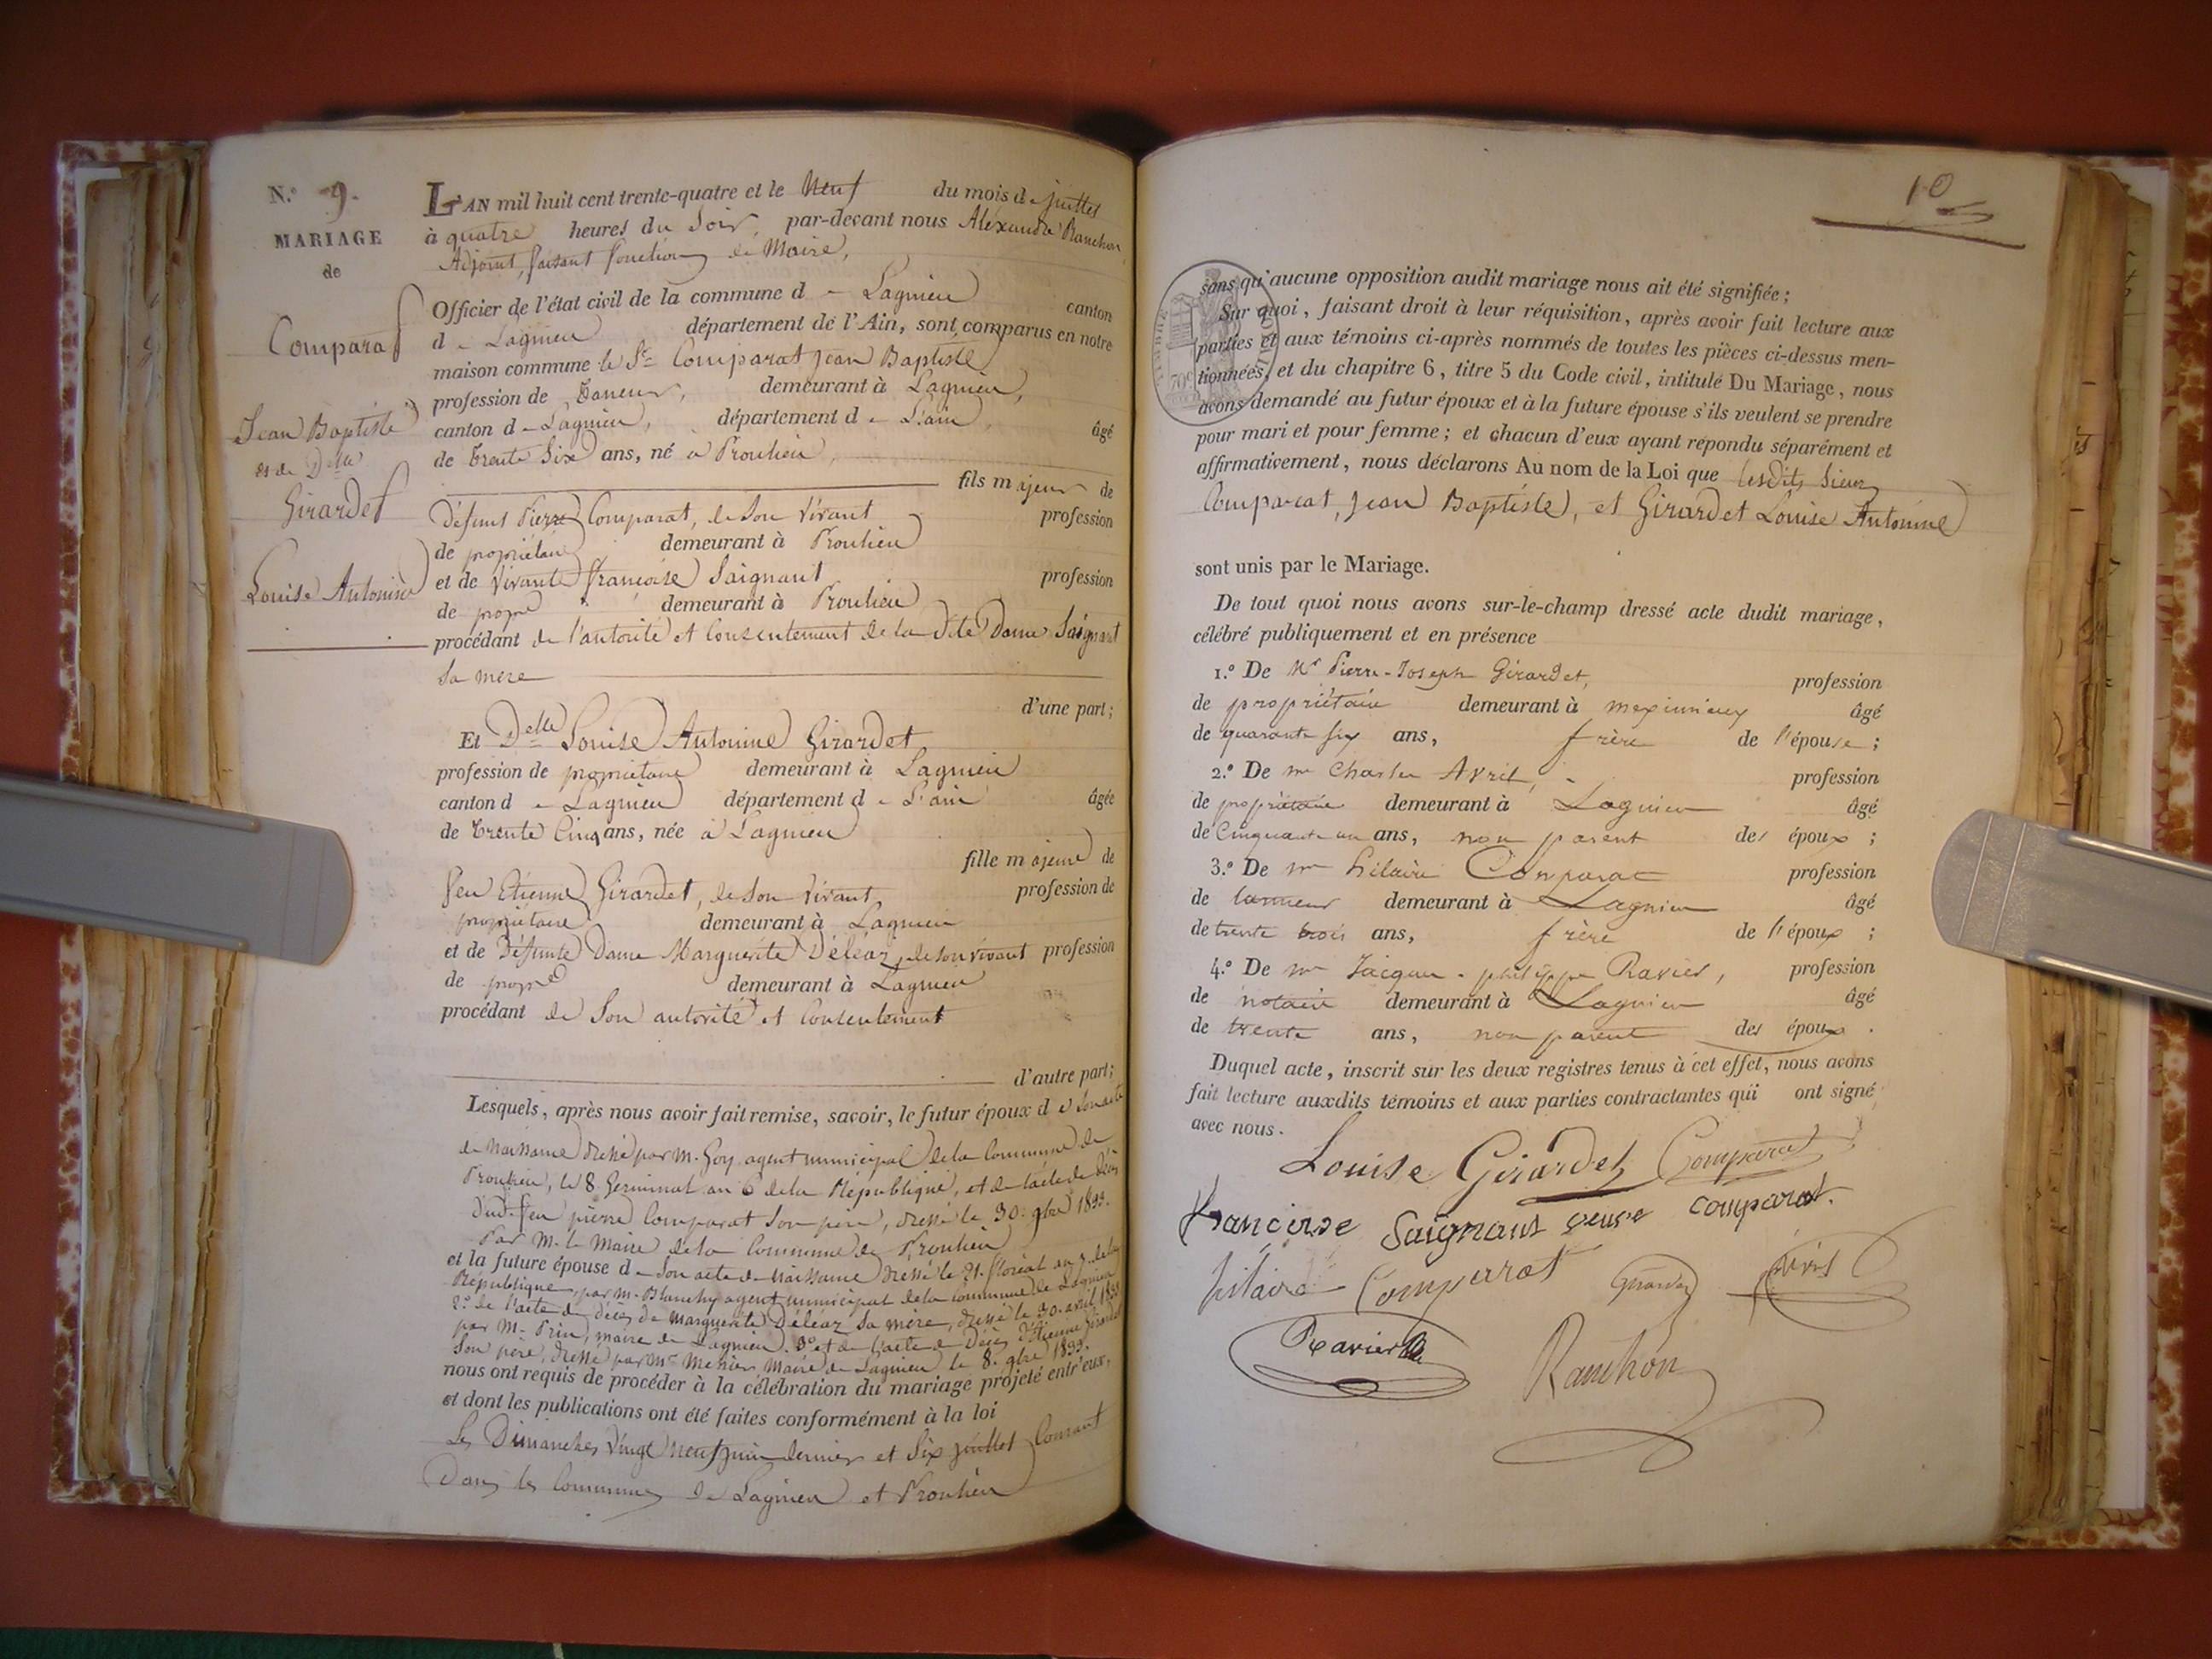 N.º 9.
MARIAGE
de
Comparat
Jean Baptiste
et de Delle
Girardet
Louise Antonine
L'AN mil huit cent trente-quatre et le Neuf du mois de juillet
à quatre heures du Soir, par-devant nous Aléxandre Ranchon
Adjoint, faisant fonctions de Maire,
Officier de l'état civil de la commune d e Lagnieu canton
d e Lagnieu département de l'Ain, sont comparus en notre
maison commune le Sr Comparat Jean Baptiste
profession de Taneur, demeurant à Lagnieu,
canton d e Lagnieu, département d e L'ain, âgé
de trente Six ans, né à Proulieu,
fils majeur de
Défunt Pierre Comparat, de Son Vivant profession
de propriétaire demeurant à Proulieu
et de Vivante françoise Saignant profession
de propre demeurant à Proulieu
procédant de l'autorité et Consentement de la dite Dame Saignant
Sa mère
d'une part;
Et Delle Louise Antonine Girardet
profession de propriétaire demeurant à Lagnieu
canton d e Lagnieu département d e L'ain âgée
de trente Cinq ans, née à Lagnieu
fille majeure de
feu Etienne Girardet, de Son Vivant, profession de
propriétaire demeurant à Lagnieu
et de Défunte Dame Marguerite Déléaz, de Son vivant profession
de propre demeurant à Lagnieu
procédant de Son autorité et Consentement
d'autre part;
Lesquels, après nous avoir fait remise, savoir, le futur époux d e Son acte
de Naissance dressé par M. Goy agent municipal de la Commune de
Proulieu, le 8 Germinal an 6 de la République, et de l'acte de Décès
dud. feu pierre Comparat Son père, dressé le 30. 9bre
Par M. le Maire de la Commune de Proulieu
et la future épouse d e Son acte de Naissance dressé le 21. floréal an 7. de la
République, par M. Blanchy agent municipal de la commune de Lagnieu
2.º de l'acte de décès de Marguerite Déléaz Sa mère, dressé le 30. avril
par M. Prin, maire de Lagnieu. 3º et de l'acte de Décès d'Etienne Girardet
Son père, dressé par Mr Maire de Lagnieu le 8.
nous ont requis de procéder à la célébration du mariage projeté entr'eux,
et dont les publications ont été faites conformément à la loi
Les Dimanches Vingt neuf juin dernier et Six juillet Courant
Dans les Communes de Lagnieu et Proulieu
10
sans qu'aucune opposition audit mariage nous ait été signifiée;
Sur quoi, faisant droit à leur réquisition, après avoir fait lecture aux
parties et aux témoins ci-après nommés de toutes les pièces ci-dessus men-
tionnées, et du chapitre 6, titre 5 du Code civil, intitulé Du Mariage, nous
avons demandé au futur époux et à la future épouse s'ils veulent se prendre
pour mari et pour femme; et chacun d'eux ayant répondu séparément et
affirmativement, nous déclarons Au nom de la Loi que lesdits Sieur
Comparat, Jean Baptiste, et Girardet Louise Antonine
sont unis par le Mariage.
De tout quoi nous avons sur-le-champ dressé acte dudit mariage,
célébré publiquement et en présence
1.º De Mr Pierre-Joseph Girardet, profession
de propriétaire demeurant à meximieux âgé
de quarante six ans, frère de l'épouse;
2.º De mr Charles Avril, profession
de propriétaire demeurant à Lagnieu âgé
de Cinquante un ans, non parent des époux;
3.º De mr hilaire Comparat profession
de tanneur demeurant à Lagnieu âgé
de trente trois ans, frère de l'époux;
4.º De mr Jacques-philippe Ravier, profession
de notaire demeurant à Lagnieu âgé
de trente ans, non parent des époux.
Duquel acte, inscrit sur les deux registres tenus à cet effet, nous avons
fait lecture auxdits témoins et aux parties contractantes qui ont signé
avec nous.
Louise Girardet Comparat
francoise Saignant veuve comparat.
hilaire Comparat Girardet Avril
Ravier Ranchon